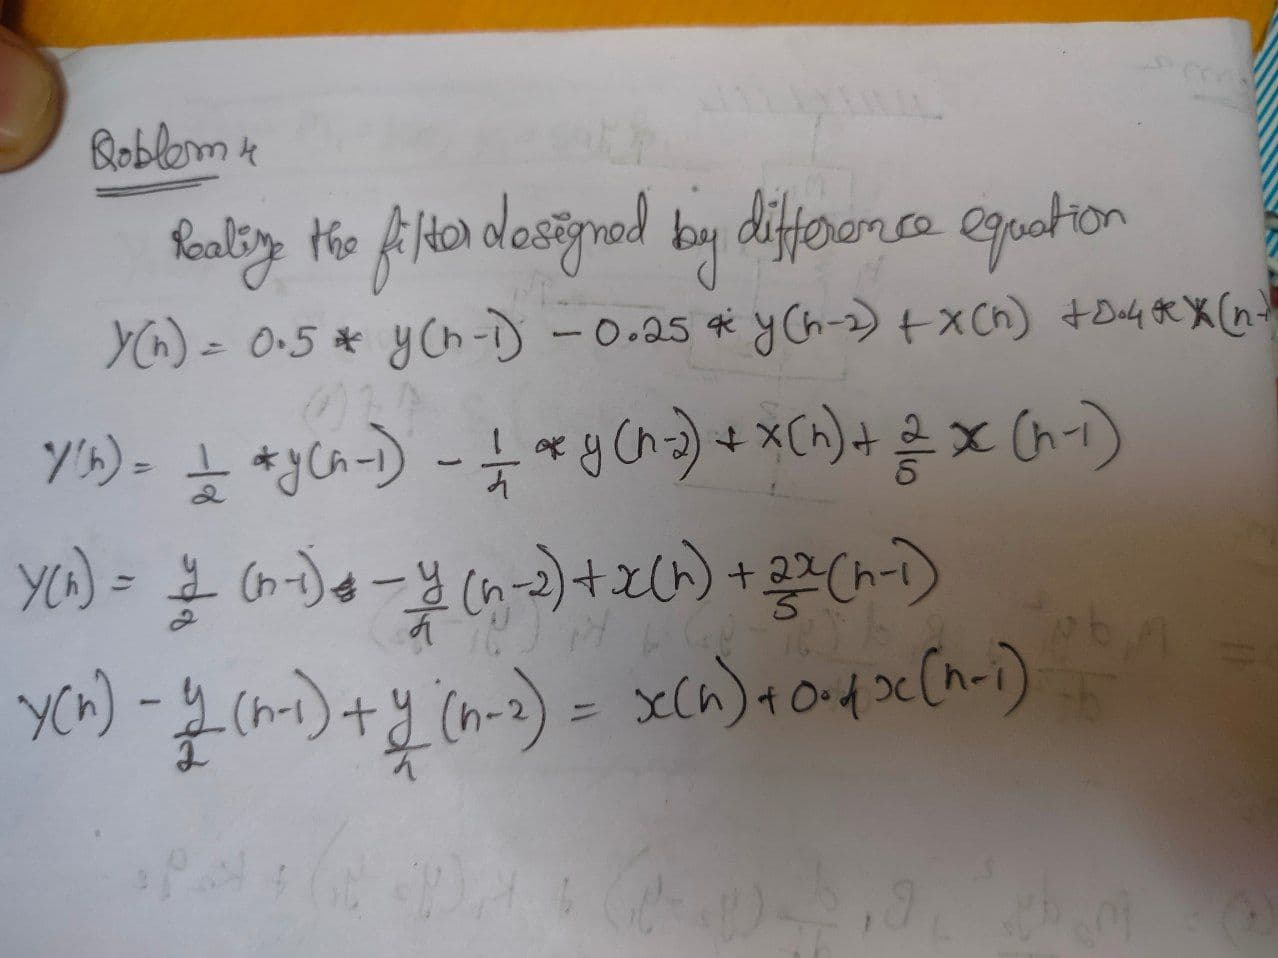 Problem 4
Realize the filter designed by difference equation
y(n) = 0.5 * y(n-1) - 0.25 * y(n-2) + x(n) + 0.4 * x(n-
y(n) = 1/2 * y(n-1) - 1/4 * y(n-2) + x(n) + 2/5 x (n-1)
y(n) = y/2 (n-1) - y/4 (n-2) + x(n) + 2x/5 (n-1)
y(n) - y/2 (n-1) + y/4 (n-2) = x(n) + 0.4x(n-1)